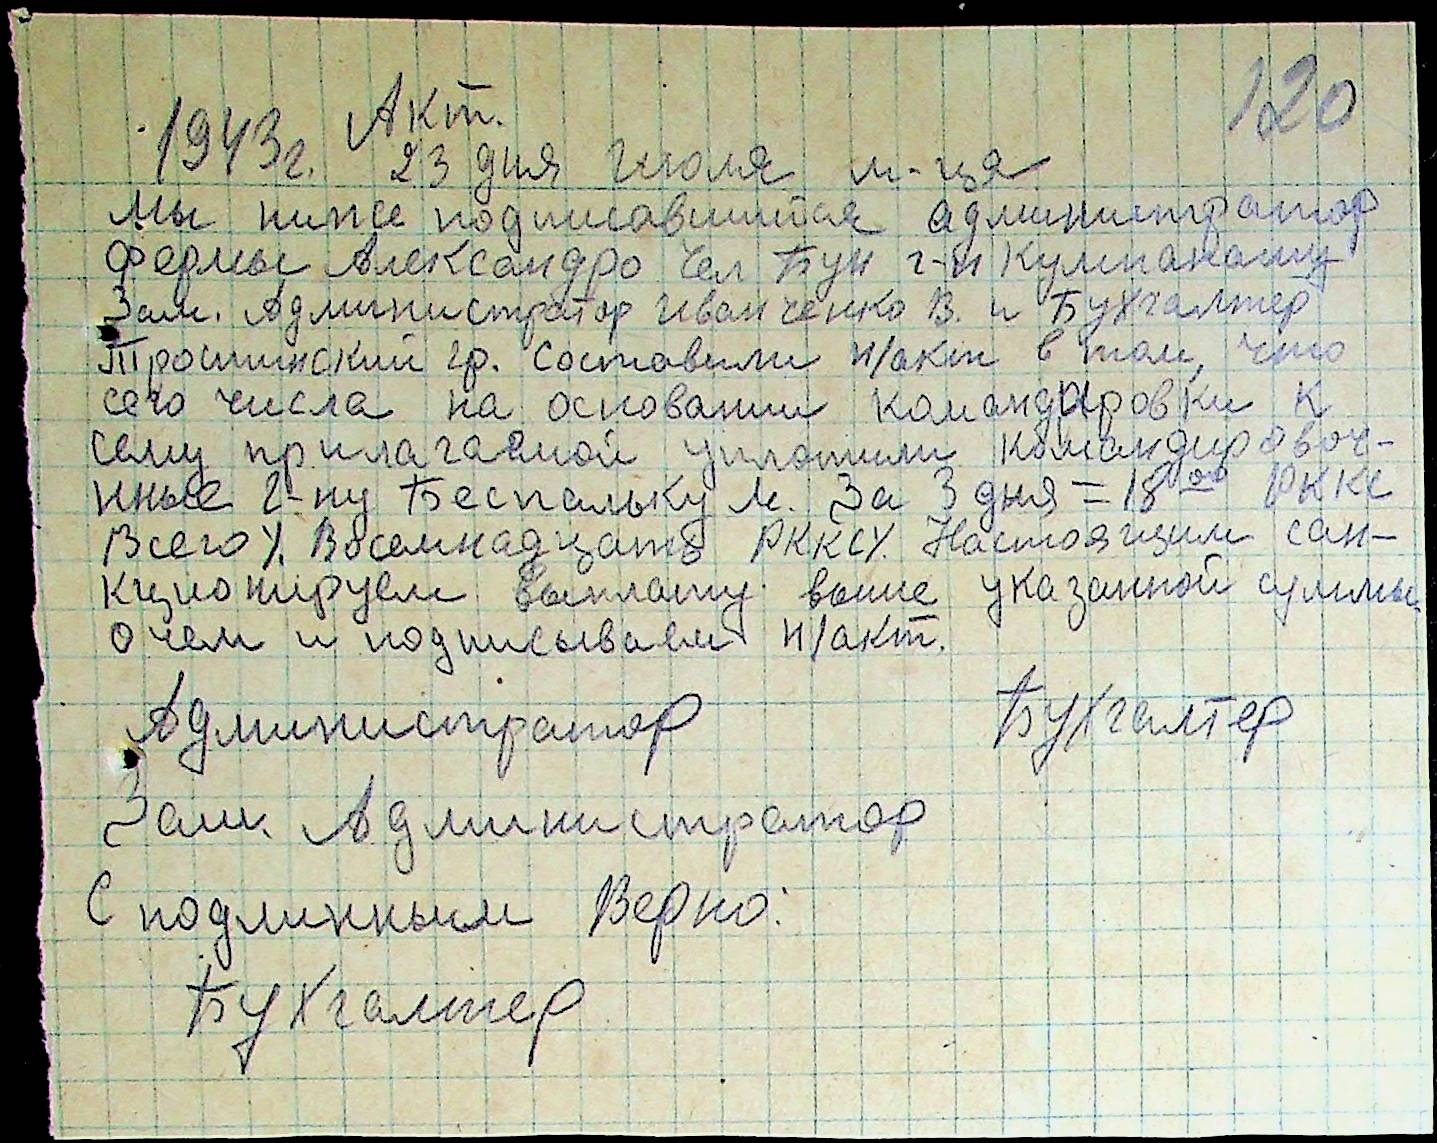 120
Акт.
1943г. 23 дня Июля м-ца
Мы ниже подписавшиеся администратор
фермы Александро чел Бун г-н Кулинашу
Зам. Администратор Иванченко В. и Бухгалтер
Тростинский гр. составили н/акт в том, что
сего числа на основании командировки к
сему прилагаемой уплотили командировоч-
нные г-ну Беспальку М. За 3 дня = 18 00 РККС
Всего /. Восемнадцать РККС/. Настоящим сан-
кционируем выплату выше указанной суммы
о чем и подписываем н/акт.
Администратор Бухгалтер
Зам. Администратор
С подлинным Верно:
Бухгалтер